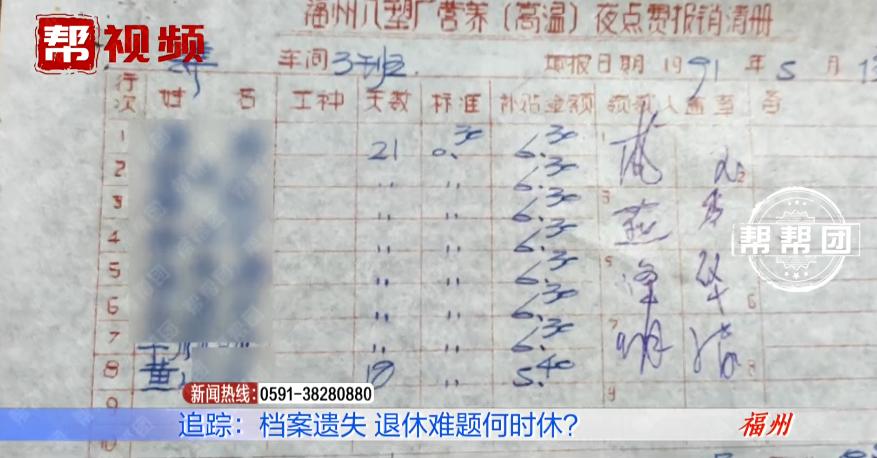 福州八塑厂营养(高温)夜点费报销清册
帮视频
车间3班 填报日期1991年5月
行次 姓名 工种 天数 标准 补贴金额 领款人盖章 备
1 21 0.30 6.30
2 〃 〃 6.30
3 〃 〃 6.30
4 〃 〃 6.30
5 〃 〃 6.30
6 〃 〃 6.30
7 〃 〃 6.30
8 黄 18 5.40
9
10
帮帮团
新闻热线:0591-38280880
追踪:档案遗失 退休难题何时休?
福州